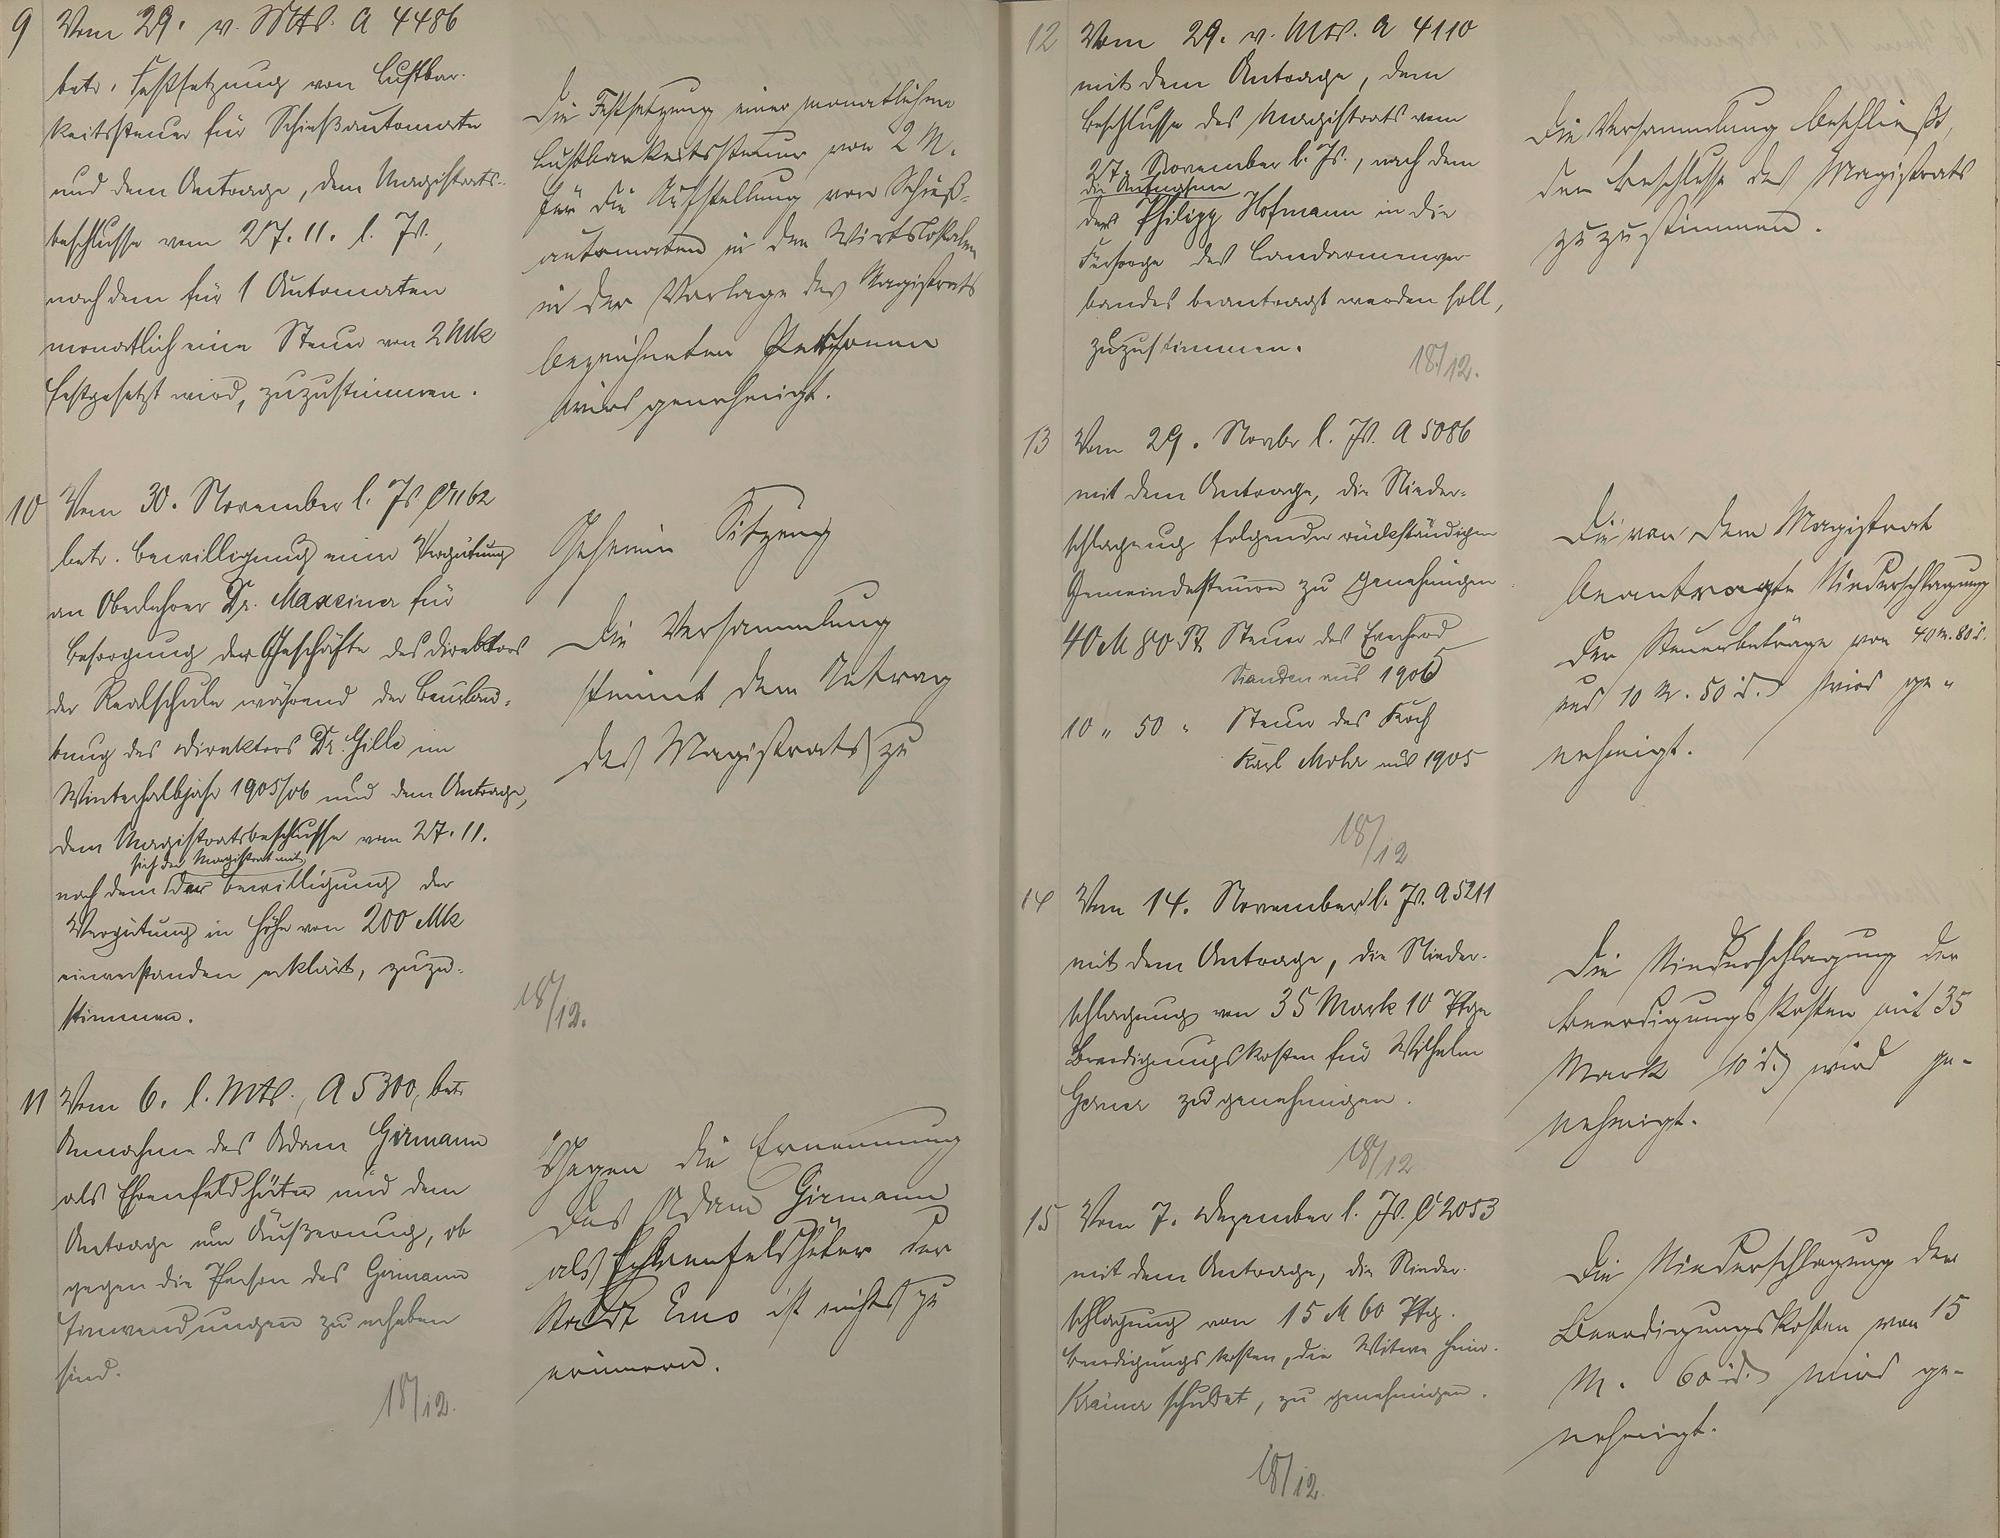 9 Vom 29. v. Mts. A 4486
betr. Festsetzung von Lustbar-
keitssteuer für Schießautomaten
und dem Antrage, dem Magistrats-
beschlusse vom 27. 11. l. Js.,
nach dem für 1 Automaten
monatlich eine Steuer von 2 Mk
festgesetzt wird, zuzustimmen.
Die Festsetzung einer monatlichen
Lustbarkeitssteuer von 2 M.
für die Aufstellung von Schieß-
automaten in den Wirtslokalen
in der Vorlage des Magistrats
bezeichneten Personen
wird genehmigt.
10 Vom 30. November l. Js. C 1162
betr. Bewilligung einer Vergütung
an Oberlehrer Dr. Maxeiner für
Besorgung der Geschäfte des Direktors
der Realschule während der Beurlau-
bung des Direktors Dr. Gille im
Winterhalbjahr 1905/06 und dem Antrage,
dem Magistratsbeschlusse vom 27. 11.
sich der Magistrat mit
nach dem der Bewilligung der
Vergütung in Höhe von 200 Mk
einverstanden erklärt, zuzu-
stimmen.
Geheime Sitzung
Die Versammlung
stimmt dem Antrag
des Magistrats zu
18/12.
11 Vom 6. l. Mts., A 5300, betr.
Annahme des Adam Germann
als Ehrenfeldhüter und dem
Antrage um Äußerung, ob
gegen die Person des Germann
Einwendungen zu erheben
sind.
18/12.
Gegen die Ernennung
des Adam Germann
als Ehrenfeldhüter der
Stadt Ems ist nichts zu
erinnern.
12 Vom 29. v. Mts. A 4110
mit dem Antrage, dem
Beschlusse des Magistrats vom
27. November l. Js., nach dem
die Aufnahme
des Philipp Hofmann in die
Fürsorge des Landarmenver-
bandes beantragt werden soll,
zuzustimmen.
18/12.
Die Versammlung beschließt,
dem Beschlusse des Magistrats
zuzustimmen.
13 Vom 29. Novbr l. Js. A 5086
mit dem Antrage, die Nieder-
schlagung folgender rückständigen
Gemeindesteuern zu genehmigen
40 M 80 Pf Steuer des
aus 1906
10 " 50 " Steuer des Koch
Karl Mohr aus 1905
18/12
Die von dem Magistrat
beantragte Niederschlagung
der Steuerbeträge von 40 M. 80 d.
und 10 M. 50 d. wird ge-
nehmigt.
14 Vom 14. November l. Js. A 5211
mit dem Antrage, die Nieder-
schlagung von 35 Mark 10 Pfge
Beerdigungskosten für Wilhelm
zu genehmigen.
18/12
Die Niederschlagung der
Beerdigungskosten mit 35
Mark 10 d. wird ge-
nehmigt.
15 Vom 7. Dezember l. Js. C 2053
mit dem Antrage, die Nieder-
schlagung von 15 M 60 Pfg.
Beerdigungskosten, die Witwe Heinr.
schuldet, zu genehmigen.
18/12.
Die Niederschlagung der
Beerdigungskosten von 15
M. 60 d. wird ge-
nehmigt.